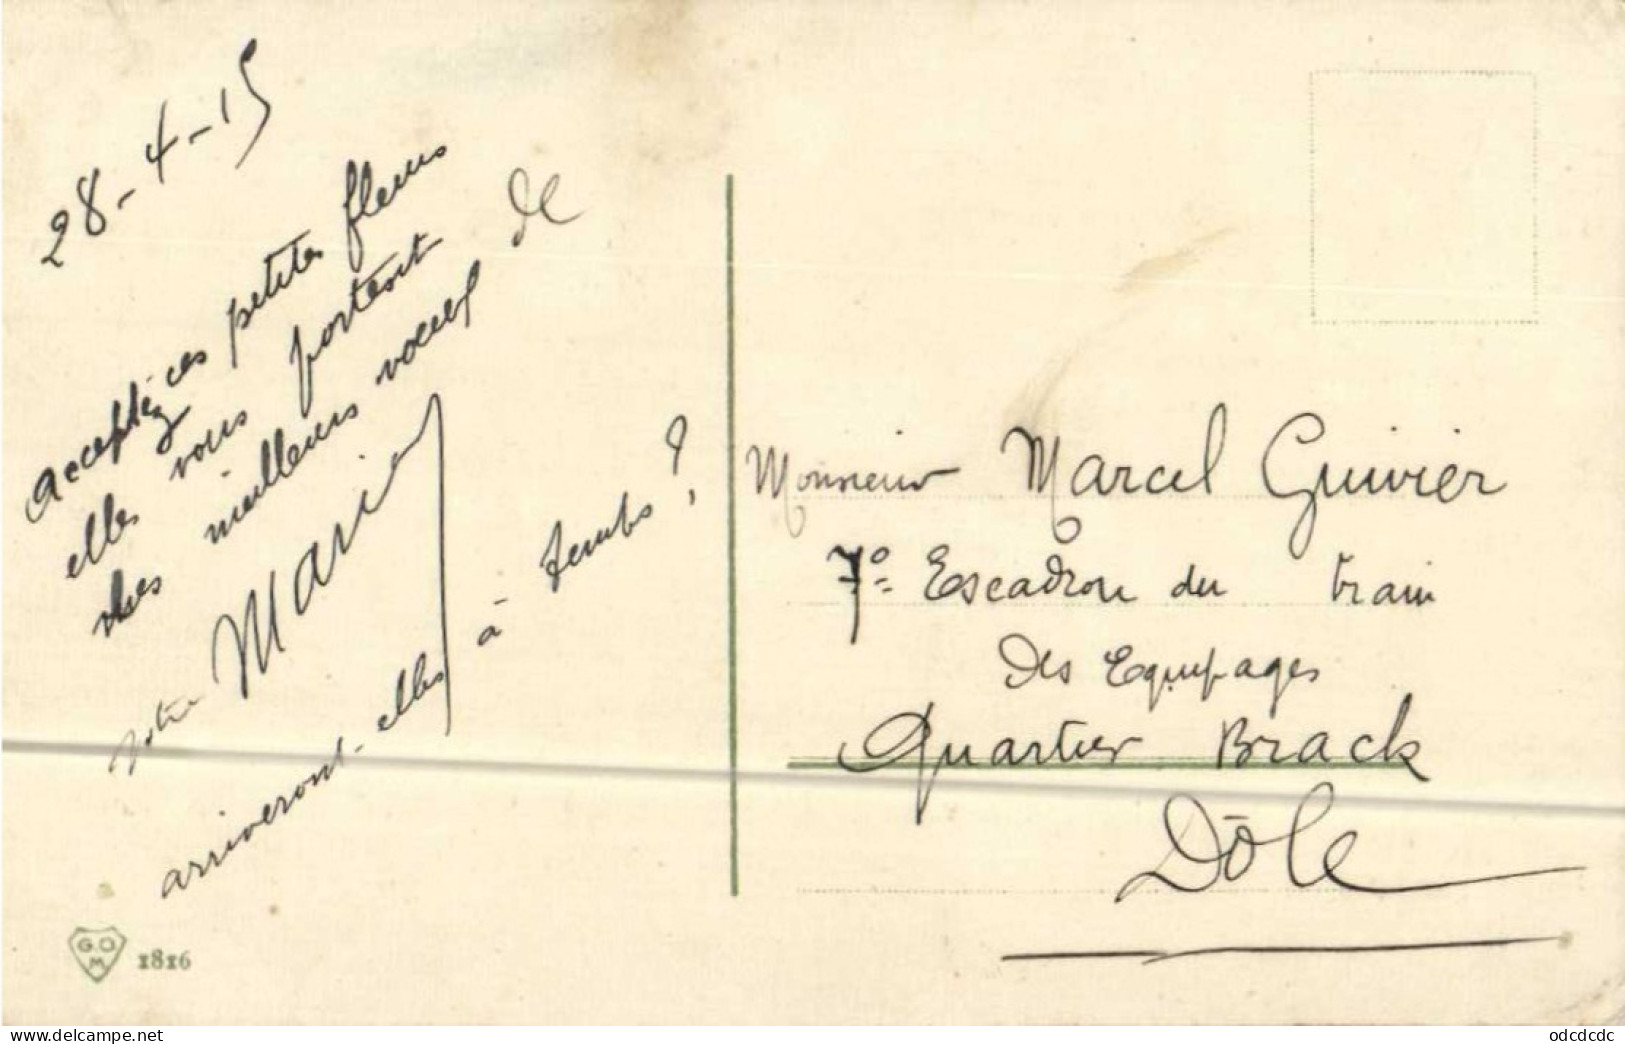 28-4-15
acceptéz ces petites fleurs de
elles vous portent
mes meilleurs voeux
votre Marie
arriveront-elles à temps?
Monsieur Marcel Guivier
7e Escadron du train
des Equipages
Quartier Brack
Dôle
G.O
M
1816
www.delcampe.net
odcdcdc